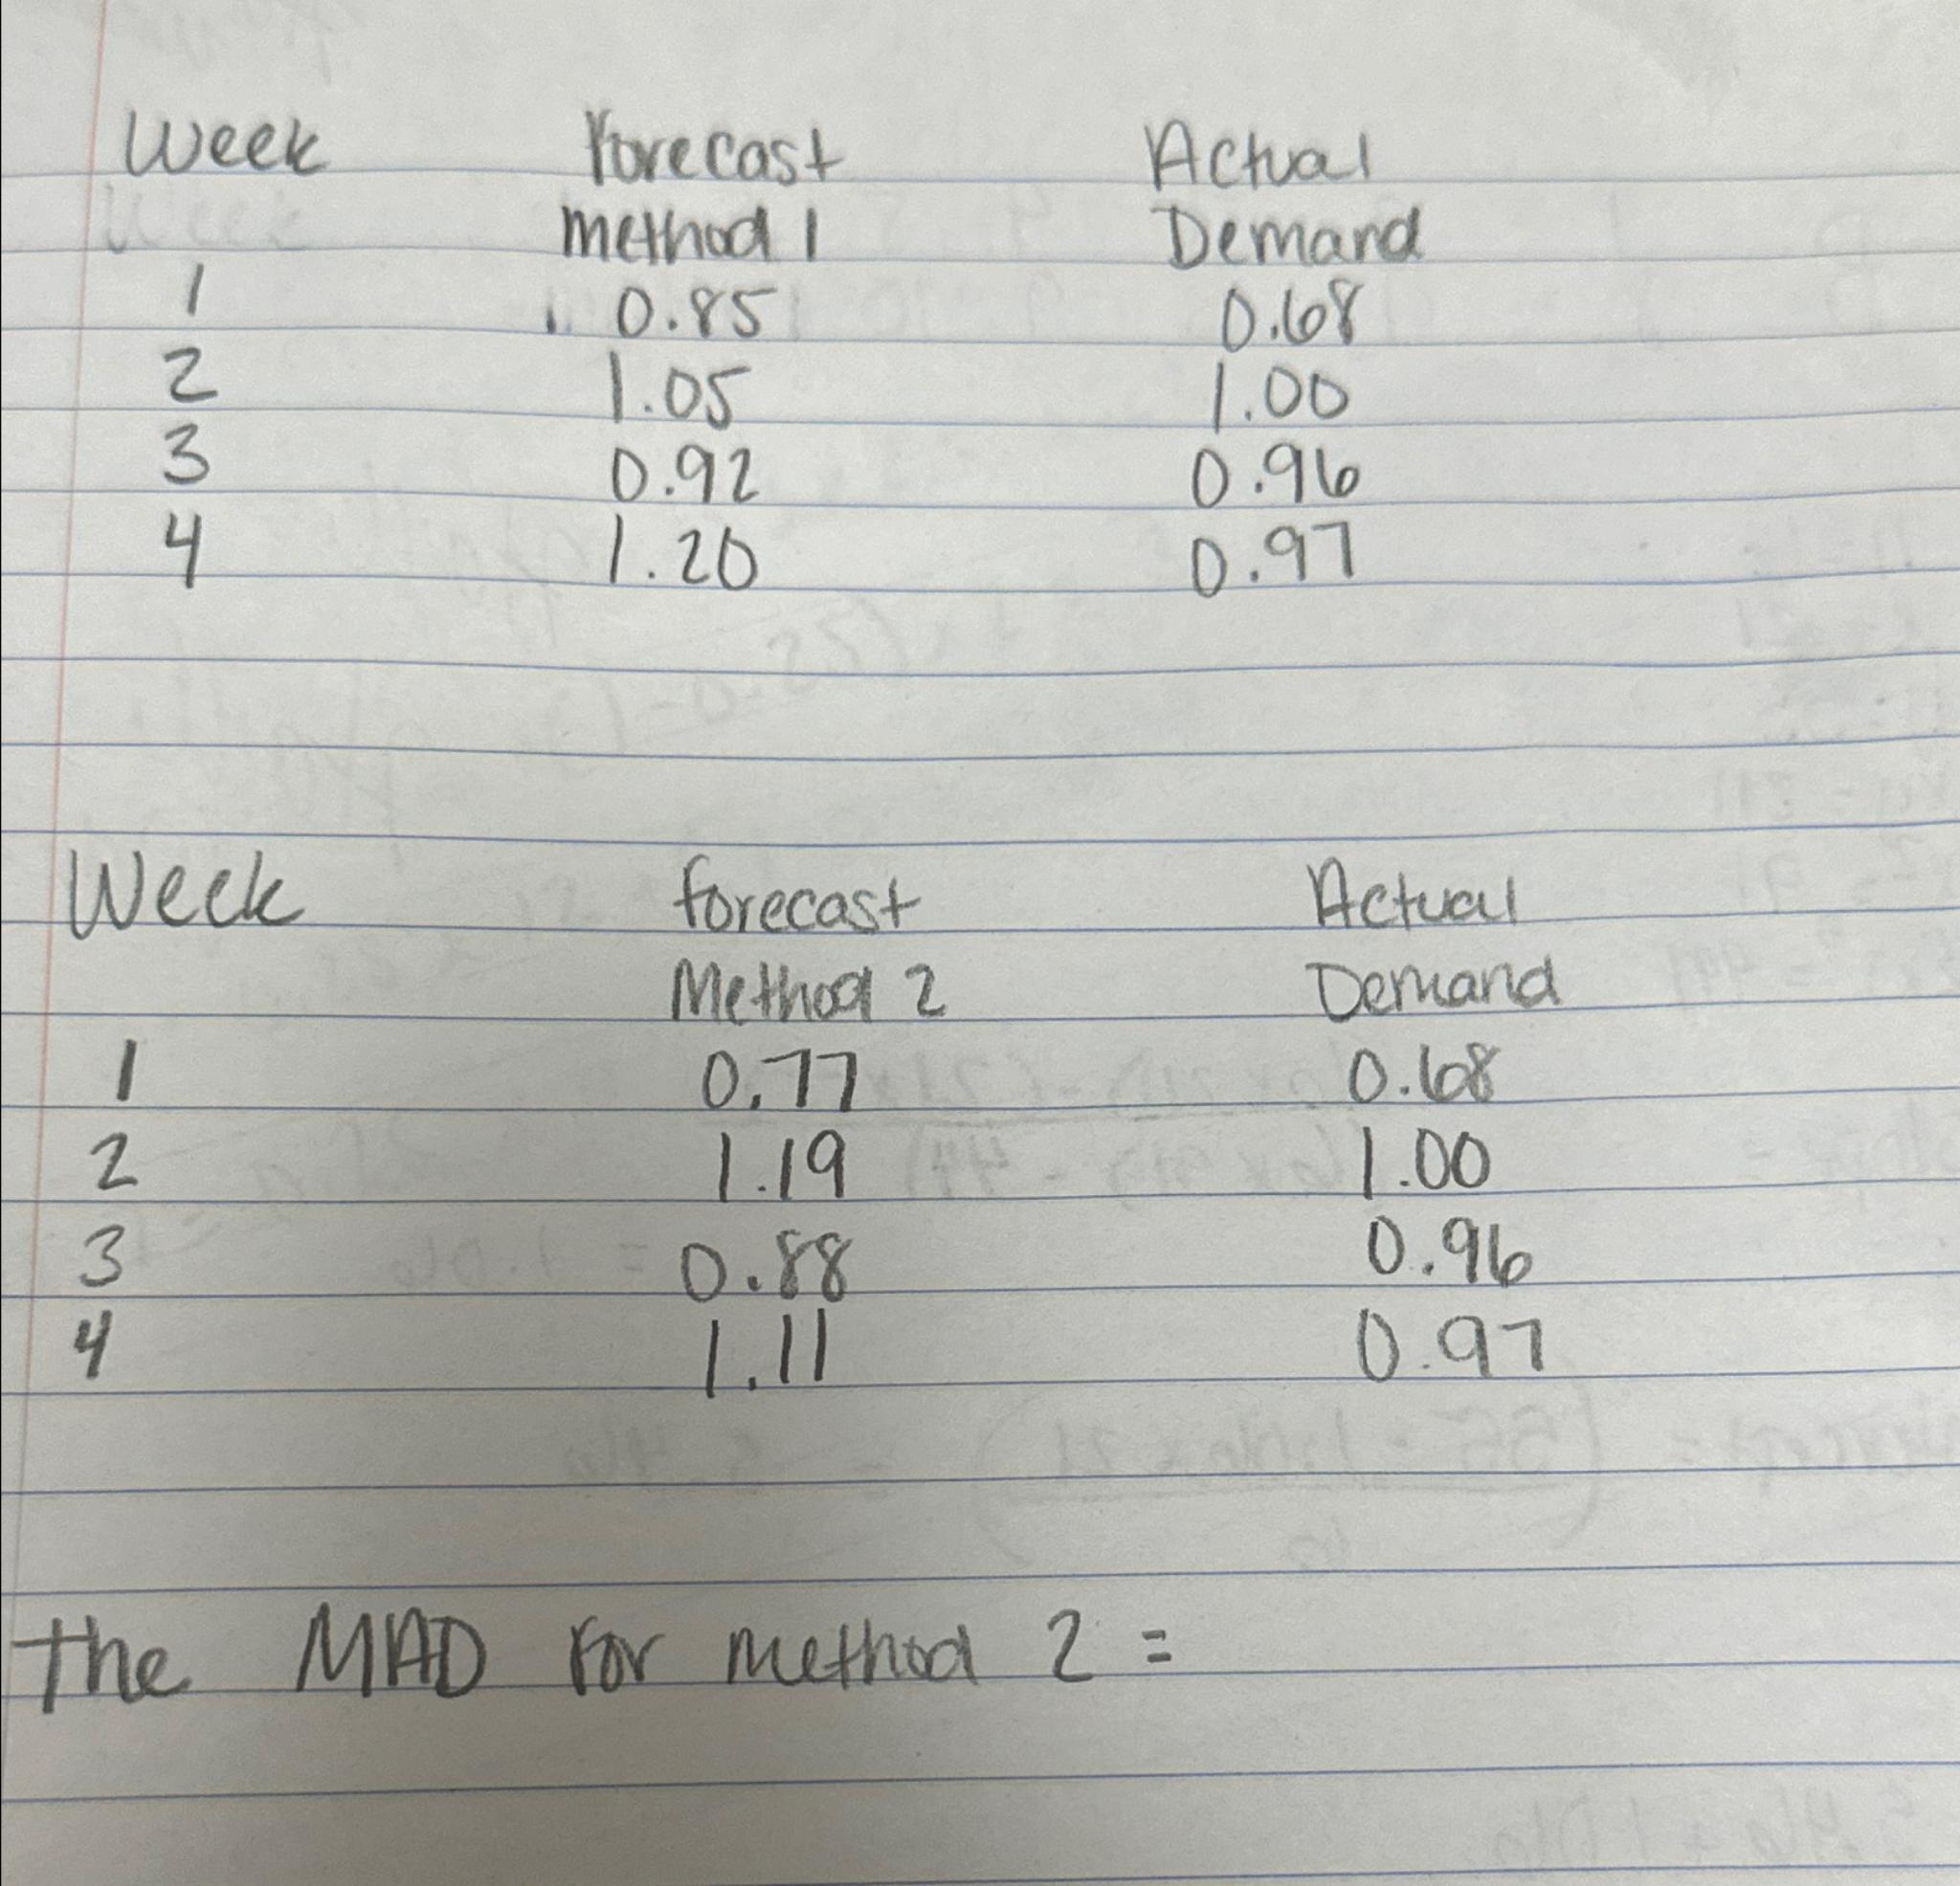 Week Forecast Actual
Method 1 Demand
1 0.85 0.68
2 1.05 1.00
3 0.92 0.96
4 1.20 0.97
Week forecast Actual
Method 2 Demand
1 0.77 0.68
2 1.19 1.00
3 0.88 0.96
4 1.11 0.97
The MAD for method 2 =